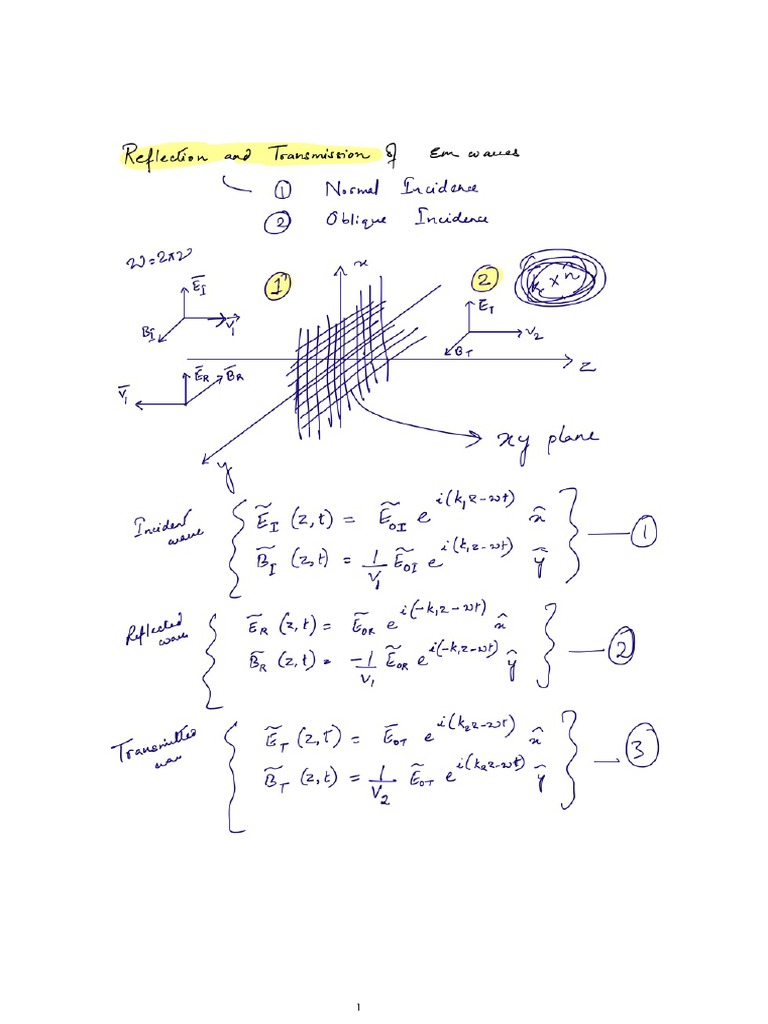 Reflection and Transmission of Em waves
① Normal Incidence
② Oblique Incidence
ω = 2πν
x
1
2
k × n̂
E̅_I
B_I
v̅_1
E̅_T
v_2
B_T
z
E̅_R B̅_R
v̅_1
xy plane
y
Incident wave
Ẽ_I (z,t) = Ẽ_OI e^{i(k_1z-ωt)} x̂
B̃_I (z,t) = 1/v_1 Ẽ_OI e^{i(k_1z-ωt)} ŷ
①
Reflected wave
Ẽ_R (z,t) = Ẽ_OR e^{i(-k_1z-ωt)} x̂
B̃_R (z,t) = -1/v_1 Ẽ_OR e^{i(-k_1z-ωt)} ŷ
②
Transmitted wave
Ẽ_T (z,t) = Ẽ_OT e^{i(k_2z-ωt)} x̂
B̃_T (z,t) = 1/v_2 Ẽ_OT e^{i(k_2z-ωt)} ŷ
③
1